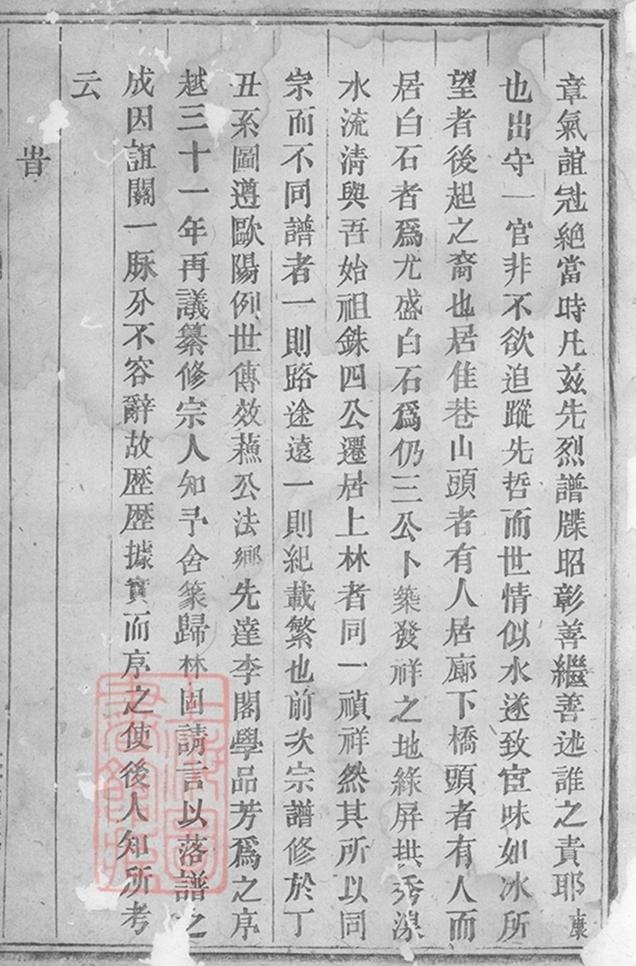 章氣誼冠絕當時凡茲先烈譜牒昭彰善繼善述誰之責耶
也出守一官非不欲追蹤先哲而世情似水遂致宦味如冰所
望者後起之裔也居佳巷山頭者有人居廊下橋頭者有人而
居白石者爲尤盛白石爲仍三公卜築發祥之地綠屏拱秀深
水流清與吾始祖銖四公遷居上林者同一禎祥然其所以同
宗而不同譜者一則路途遠一則紀載繁也前次宗譜修於丁
丑系圖遵歐陽例世傳效蘓公法鄉先達李閣學品芳爲之序
越三十一年再議纂修宗人知予舍篆歸林固請言以落譜之
成因誼關一脉分不容辭故歷歷據實而序之使後人知所考
云
旹